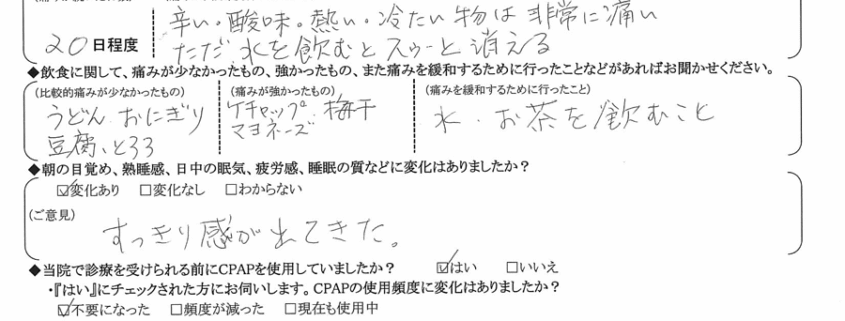 辛い・酸味・熱い・冷たい物は非常に痛い
20日程度
ただ、水を飲むとスゥーと消える
◆飲食に関して、痛みが少なかったもの、強かったもの、また痛みを緩和するために行ったことなどがあればお聞かせください。
(比較的痛みが少なかったもの) (痛みが強かったもの) (痛みを緩和するために行ったこと)
うどん おにぎり ケチャップ 梅干 水・お茶を飲むこと
豆腐、とろろ マヨネーズ
◆朝の目覚め、熟睡感、日中の眠気、疲労感、睡眠の質などに変化はありましたか?
☑変化あり □変化なし □わからない
(ご意見)
すっきり感が出てきた。
◆当院で診療を受けられる前にCPAPを使用していましたか? ☑はい □いいえ
・『はい』にチェックされた方にお伺いします。CPAPの使用頻度に変化はありましたか?
☑不要になった □頻度が減った □現在も使用中